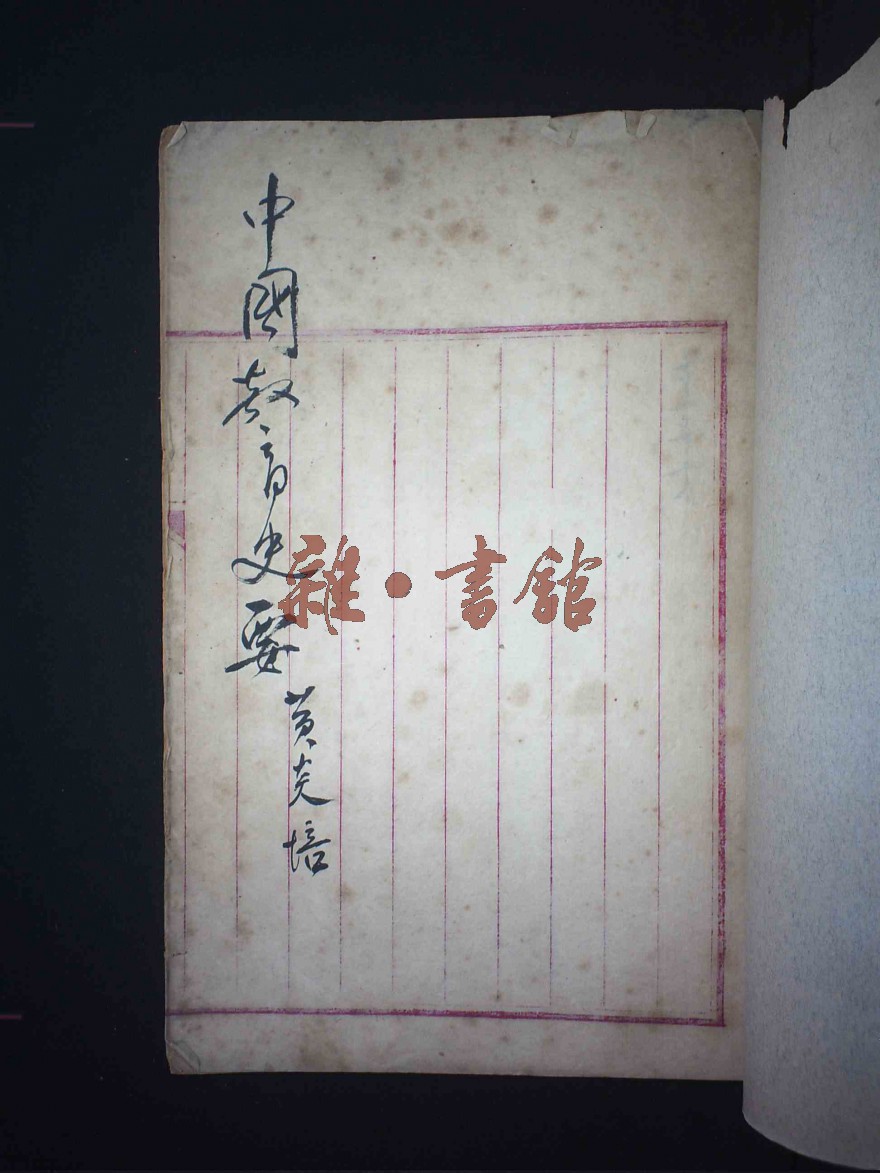 中國教育史要
黃炎培
雜·書館